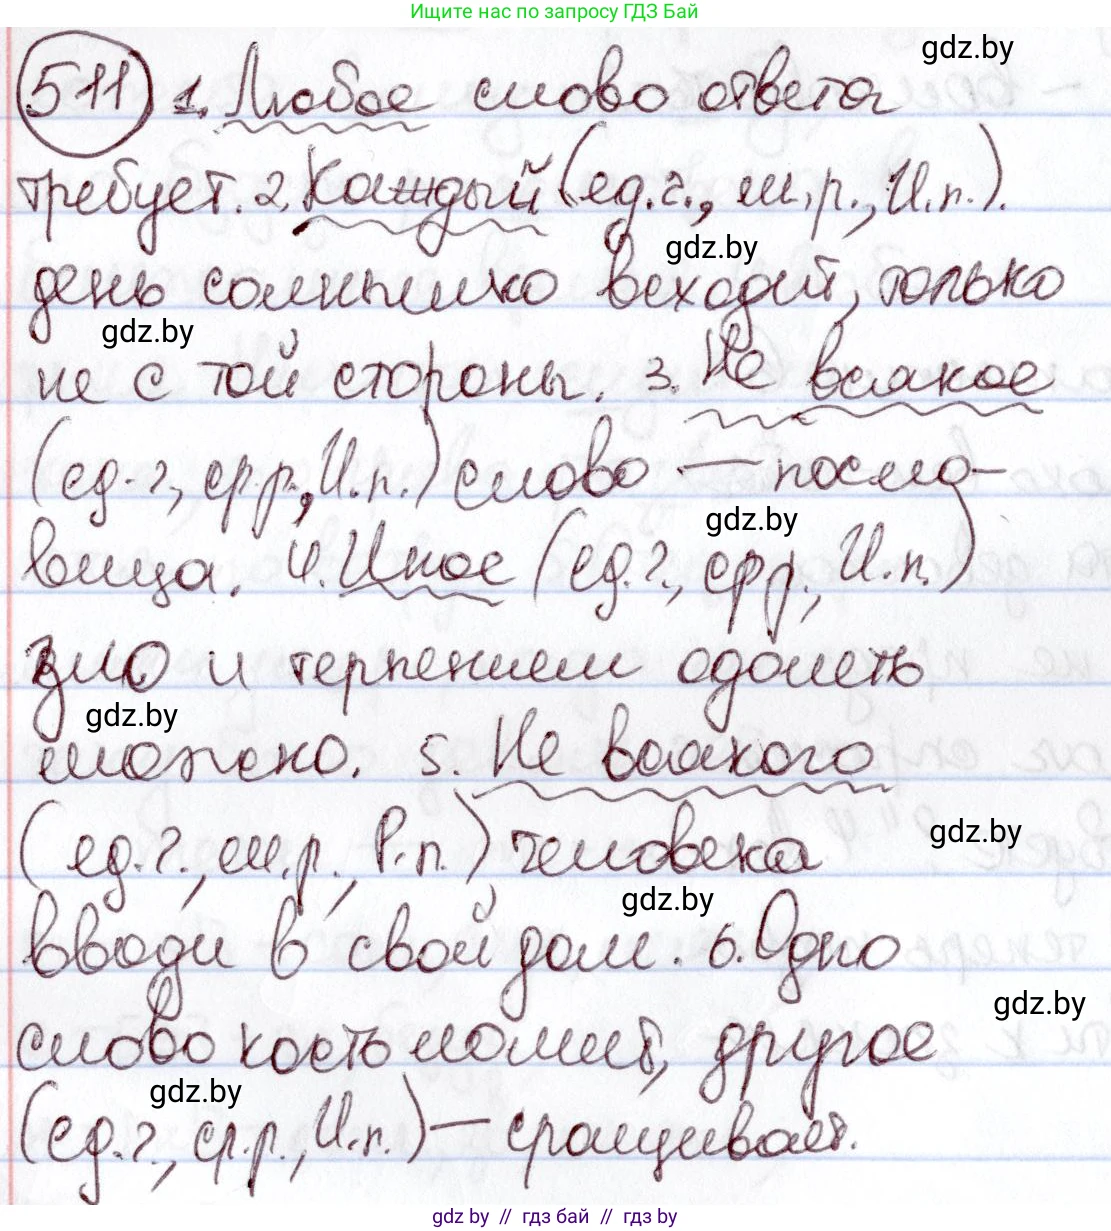 Ищите нас по запросу ГДЗ Бай
gdz.by
511 1. Любое слово ответа
требует. 2. Каждый (ед.ч., м.р., И.п.).
gdz.by
день солнышко всходит, только
gdz.by
не с той стороны. 3. Не всякое
(ед.ч., ср.р., И.п.) слово — посло-
gdz.by
вица. 4. Иное (ед.ч., ср.р., И.п.)
зло и терпением одолеть
gdz.by
можно. 5. Не всякого
(ед.ч., м.р., Р.п.) человека
gdz.by
gdz.by
вводи в свой дом. 6. Одно
gdz.by
слово кость ломит, другое
gdz.by
(ед.ч., ср.р., И.п.) — сращивает.
gdz.by // гдз бай // гдз by